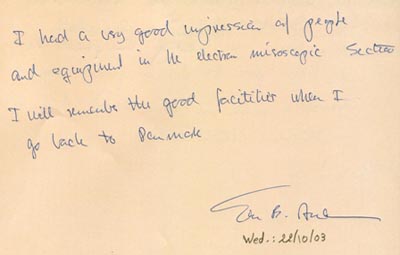 I had a very good impression of people
and equipment in the electron misoscopic Section
I will remember the good facilities when I
go back to Denmark
B.
Wed.: 22/10/03